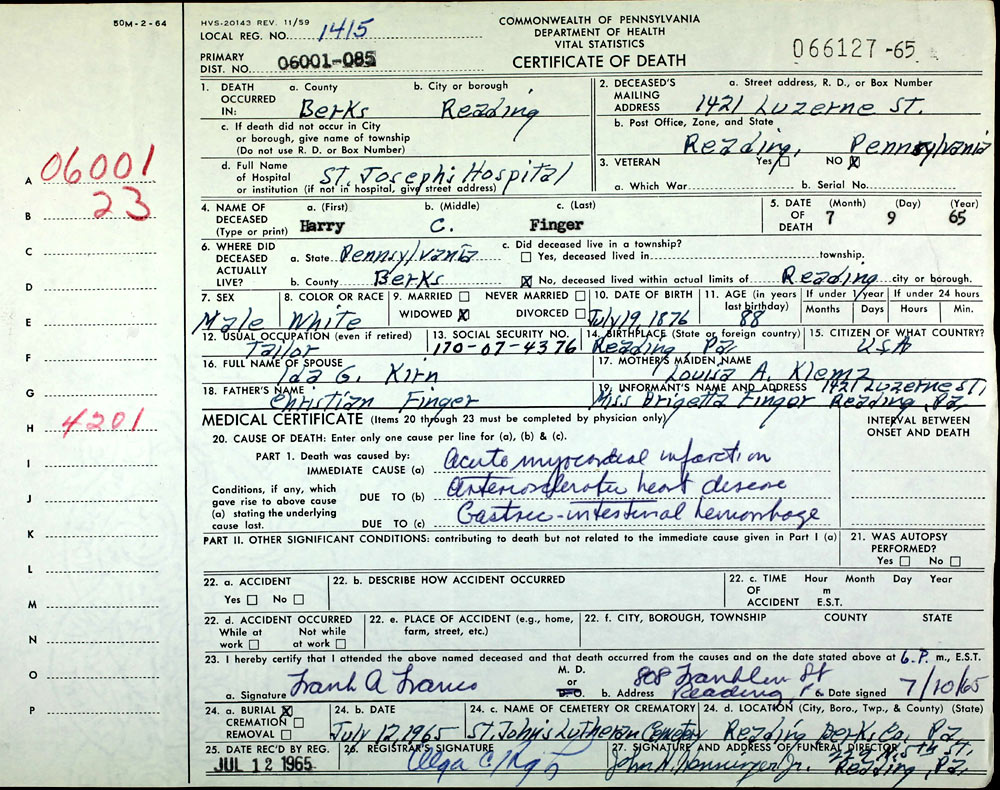 50M-2-64
HVS-20143 REV. 11/59
LOCAL REG. NO. 1415
PRIMARY
DIST. NO. 06001-085
COMMONWEALTH OF PENNSYLVANIA
DEPARTMENT OF HEALTH
VITAL STATISTICS
CERTIFICATE OF DEATH
066127-65
1. DEATH OCCURRED IN: a. County b. City or borough
Berks Reading
c. If death did not occur in City
or borough, give name of township
(Do not use R. D. or Box Number)
d. Full Name
of Hospital
or institution (if not in hospital, give street address)
St. Joseph's Hospital
2. DECEASED'S MAILING ADDRESS a. Street address, R. D., or Box Number
1421 Luzerne St.
b. Post Office, Zone, and State
Reading, Pennsylvania
3. VETERAN Yes ☐ NO ☒
a. Which War b. Serial No.
4. NAME OF DECEASED (Type or print) a. (First) b. (Middle) c. (Last)
Harry C. Finger
5. DATE OF DEATH (Month) (Day) (Year)
7 9 65
6. WHERE DID DECEASED ACTUALLY LIVE?
a. State Pennsylvania
b. County Berks
c. Did deceased live in a township?
☐ Yes, deceased lived in township.
☒ No, deceased lived within actual limits of Reading city or borough.
7. SEX
Male
8. COLOR OR RACE
White
9. MARRIED ☐ NEVER MARRIED ☐
WIDOWED ☒ DIVORCED ☐
10. DATE OF BIRTH
July 19, 1876
11. AGE (in years last birthday)
88
If under 1 year
Months Days
If under 24 hours
Hours Min.
12. USUAL OCCUPATION (even if retired)
Tailor
13. SOCIAL SECURITY NO.
170-07-4376
14. BIRTHPLACE (State or foreign country)
Reading Pa
15. CITIZEN OF WHAT COUNTRY?
USA
16. FULL NAME OF SPOUSE
Ida G. Kirn
17. MOTHER'S MAIDEN NAME
Louisa A. Klemz
18. FATHER'S NAME
Christian Finger
19. INFORMANT'S NAME AND ADDRESS 1421 Luzerne St.
Miss Brigetta Finger Reading, Pa.
MEDICAL CERTIFICATE (Items 20 through 23 must be completed by physician only)
INTERVAL BETWEEN
ONSET AND DEATH
20. CAUSE OF DEATH: Enter only one cause per line for (a), (b) & (c).
PART 1. Death was caused by:
IMMEDIATE CAUSE (a) Acute myocardial infarction
Conditions, if any, which
gave rise to above cause
(a) stating the underlying
cause last.
DUE TO (b) Arteriosclerotic heart disease
DUE TO (c) Gastric-intestinal hemorrhage
PART II. OTHER SIGNIFICANT CONDITIONS: contributing to death but not related to the immediate cause given in Part I (a)
21. WAS AUTOPSY
PERFORMED?
Yes ☐ No ☐
22. a. ACCIDENT
Yes ☐ No ☐
22. b. DESCRIBE HOW ACCIDENT OCCURRED
22. c. TIME OF ACCIDENT Hour Month Day Year
m
E.S.T.
22. d. ACCIDENT OCCURRED
While at work ☐ Not while at work ☐
22. e. PLACE OF ACCIDENT (e.g., home,
farm, street, etc.)
22. f. CITY, BOROUGH, TOWNSHIP COUNTY STATE
23. I hereby certify that I attended the above named deceased and that death occurred from the causes and on the date stated above at 6.P. m., E.S.T.
a. Signature Frank A Franco M. D. or D.O. b. Address 808 Franklin St
Reading, P c. Date signed 7/10/65
24. a. BURIAL ☒
CREMATION ☐
REMOVAL ☐
24. b. DATE
July 12, 1965
24. c. NAME OF CEMETERY OR CREMATORY
St. John's Lutheran Cemetery
24. d. LOCATION (City, Boro., Twp., & County) (State)
Reading Berks Co. Pa
25. DATE REC'D BY REG.
JUL 12 1965
26. REGISTRAR'S SIGNATURE
Olga C
27. SIGNATURE AND ADDRESS OF FUNERAL DIRECTOR
John N. Jr. th St.
Reading, Pa.
A 06001
B 23
C
D
E
F
G
H 4201
I
J
K
L
M
N
O
P